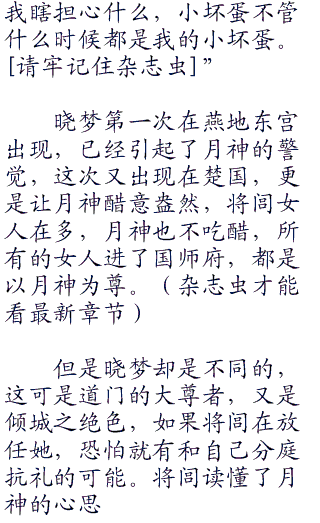 我瞎担心什么，小坏蛋不管
什么时候都是我的小坏蛋。
[请牢记住杂志虫]”
晓梦第一次在燕地东宫
出现，已经引起了月神的警
觉，这次又出现在楚国，更
是让月神醋意盎然，将闾女
人在多，月神也不吃醋，所
有的女人进了国师府，都是
以月神为尊。（杂志虫才能
看最新章节）
但是晓梦却是不同的，
这可是道门的大尊者，又是
倾城之绝色，如果将闾在放
任她，恐怕就有和自己分庭
抗礼的可能。将闾读懂了月
神的心思